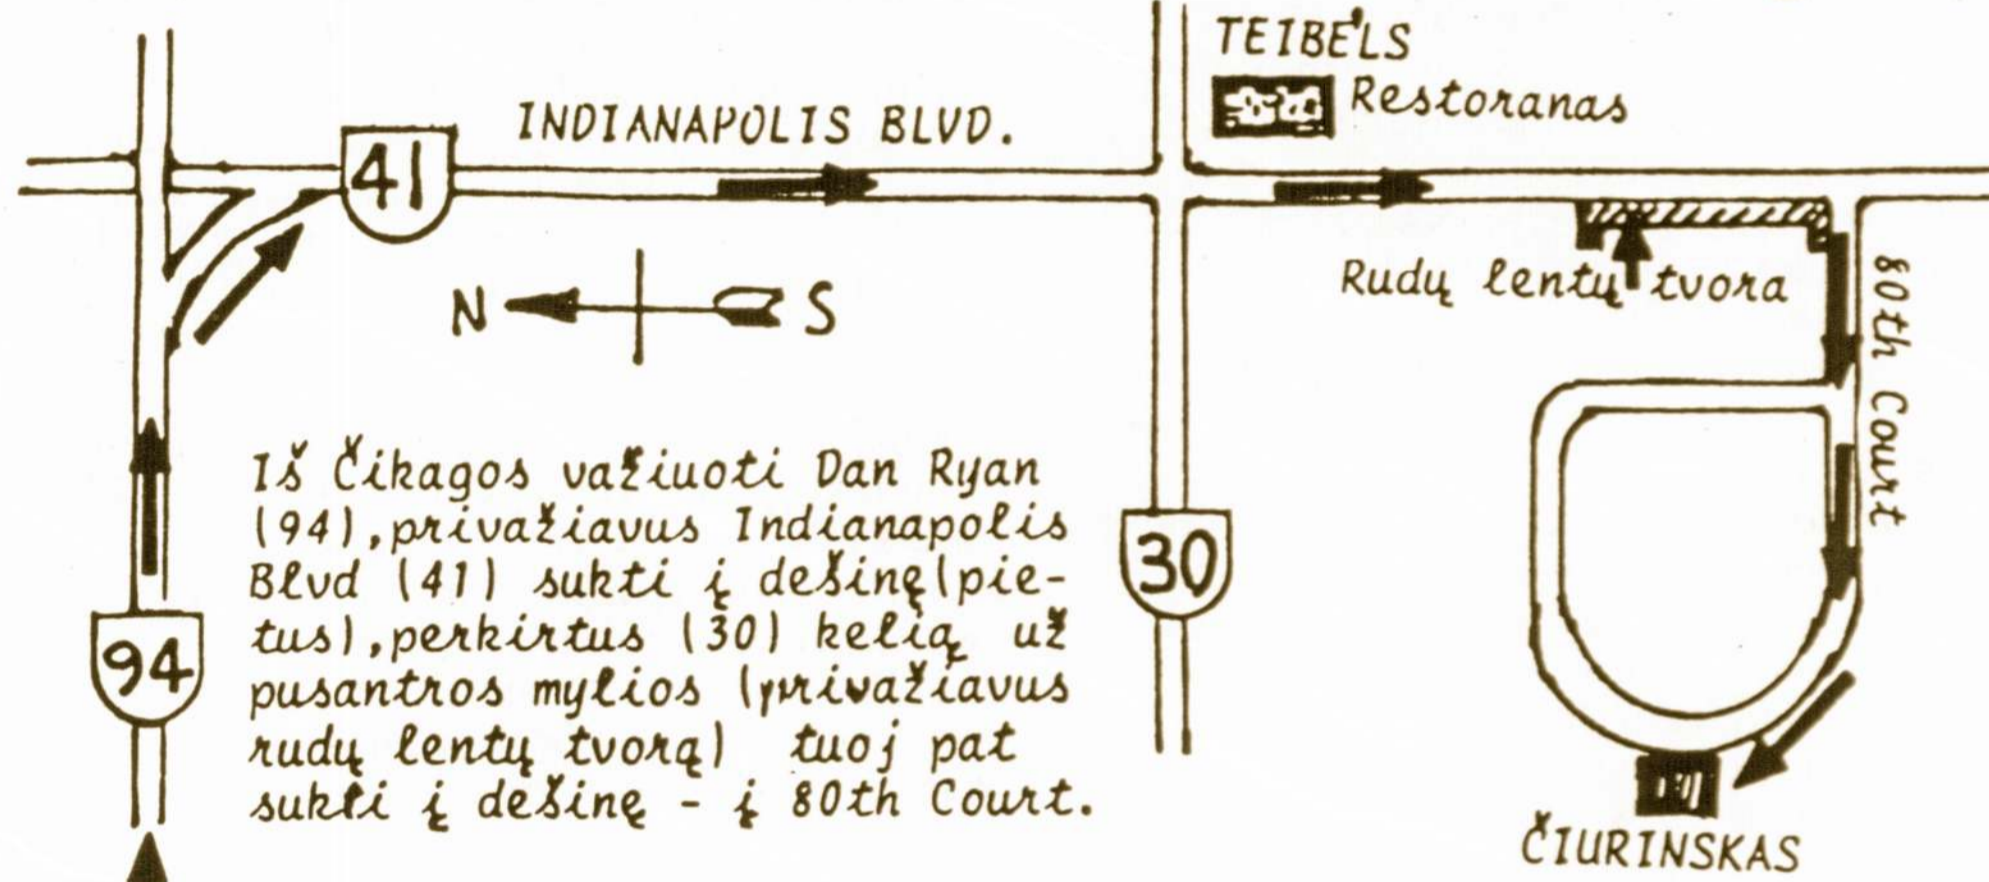 TEIBEL'S
Restoranas
INDIANAPOLIS BLVD.
41
N S
Rudų lentų tvora
80th Court
Iš Čikagos važiuoti Dan Ryan
(94), privažiavus Indianapolis
Blvd (41) sukti į dešinę (pie-
tus), perkirtus (30) kelią už
pusantros mylios (privažiavus
rudų lentų tvorą) tuoj pat
sukti į dešinę - į 80th Court.
30
94
ČIURINSKAS